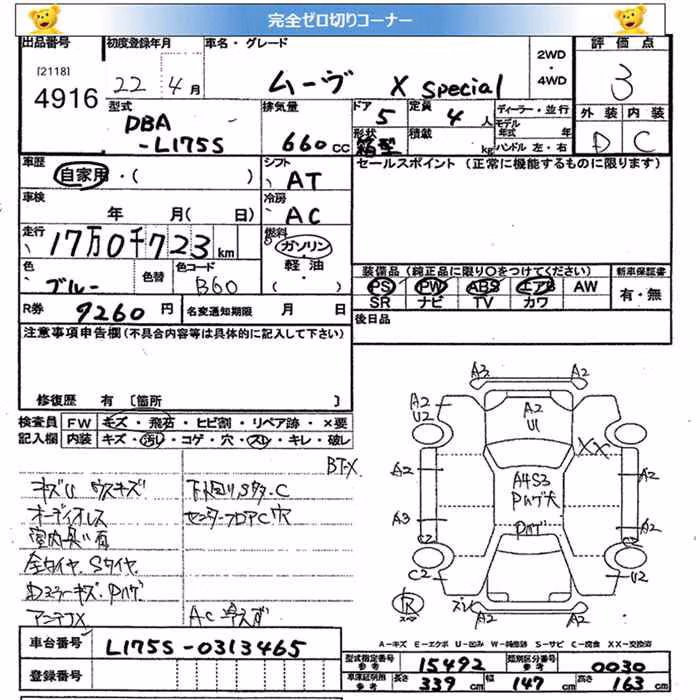 完全ゼロ切りコーナー
出品番号 初度登録年月 車名・グレード 2WD・4WD 評価点
[2118] 4916 22年4月 ムーヴ X Special 3
型式 排気量 ドア 5 定員 4人 ディーラー・並行 外装 内装
DBA-L175S 660cc 形状 箱型 積載 kg モデル年式 年 ハンドル 左・右 D C
車歴 自家用・( ) シフト AT セールスポイント (正常に機能するものに限ります)
車検 年 月(日) 冷房 AC
走行 17万0千723km 燃料 ガソリン・軽油・( )
色 ブルー 色替 色コード B60 装備品(純正品に限り○をつけてください) 新車保証書
PS PW ABS エアB AW 有・無
SR ナビ TV カワ
R券 9260円 名変通知期限 月 日 後日品
注意事項申告欄(不具合内容等は具体的に記入して下さい)
修復歴 有〔箇所 〕
検査員 FW キズ・飛石・ヒビ割・リペア跡・×要
記入欄 内装 キズ・汚れ・コゲ・穴・スレ・キレ・破レ
BT-X
キズU ウスキズ 下回りSタタ.C
オーディオレス センターフロアC穴
室内臭い有
全タイヤ.Sタイヤ
アンテナX AC冷えず
A3 A2
A2 U2 A2 U1 XX
A2 A4S3 A2
A3 C2 Pハゲ A2 C2
C2 U2
R スペア ズレ A2 A2
A-キズ E-エクボ U-凹み W-補修跡 S-サビ C-腐食 XX-交換済
車台番号 L175S-0313465 型式指定番号 参考 15492 類別区分番号 参考 0030
登録番号 車庫証明用 参考 長さ 339cm 幅 147cm 高さ 163cm